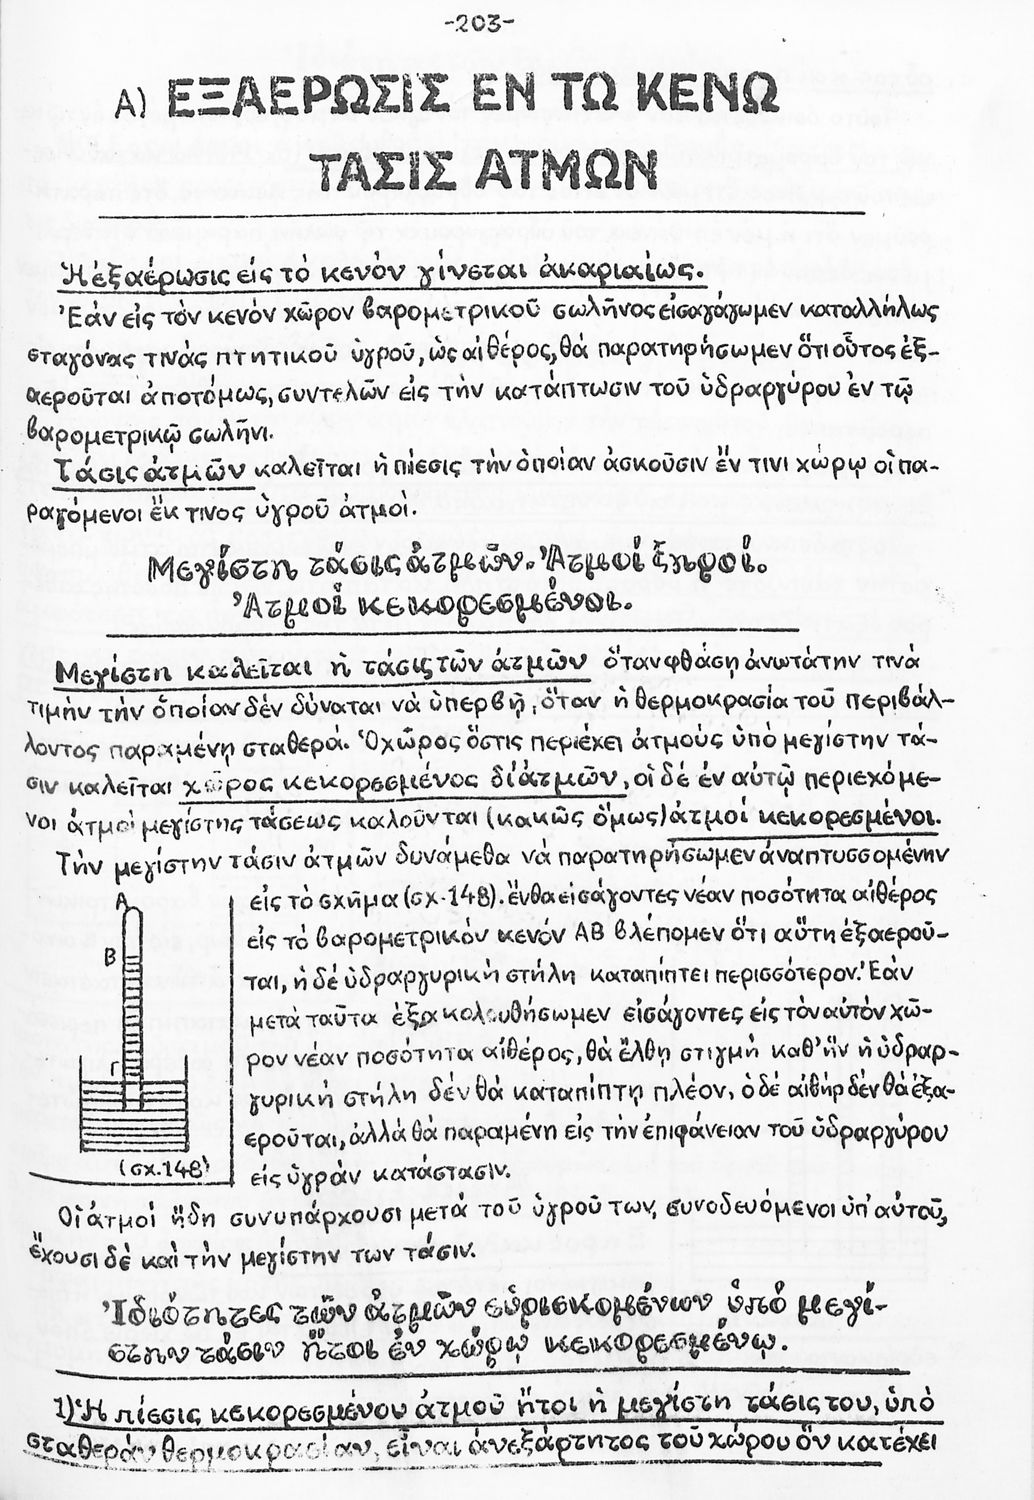 -203-
Α) ΕΞΑΕΡΩΣΙΣ ΕΝ ΤΩ ΚΕΝΩ
ΤΑΣΙΣ ΑΤΜΩΝ
Ἡ ἐξαέρωσις εἰς τὸ κενὸν γίνεται ἀκαριαίως.
Ἐάν εἰς τὸν κενόν χῶρον βαρομετρικοῦ σωλῆνος εἰσαγάγωμεν καταλλήλως
σταγόνας τινάς πτητικοῦ ὑγροῦ, ὡς αἰθέρος, θά παρατηρήσωμεν ὅτι οὗτος ἐξ-
αεροῦται ἀποτόμως, συντελῶν εἰς τὴν κατάπτωσιν τοῦ ὑδραργύρου ἐν τῷ
βαρομετρικῷ σωλῆνι.
Τάσις ἀτμῶν καλεῖται ἡ πίεσις τὴν ὁποίαν ἀσκοῦσιν ἔν τινι χώρῳ οἱ πα-
ραγόμενοι ἔκ τινος ὑγροῦ ἀτμοί.
Μεγίστη τάσις ἀτμῶν. Ἀτμοί ξηροί.
Ἀτμοί κεκορεσμένοι.
Μεγίστη καλεῖται ἡ τάσις τῶν ἀτμῶν ὅταν φθάσῃ ἀνωτάτην τινά
τιμὴν τὴν ὁποίαν δέν δύναται νά ὑπερβῇ, ὅταν ἡ θερμοκρασία τοῦ περιβάλ-
λοντος παραμένῃ σταθερά. Ὁ χῶρος ὅστις περιέχει ἀτμούς ὑπό μεγίστην τά-
σιν καλεῖται χῶρος κεκορεσμένος δι' ἀτμῶν, οἱ δέ ἐν αὐτῷ περιεχόμε-
νοι ἀτμοί μεγίστης τάσεως καλοῦνται (κακῶς ὅμως) ἀτμοί κεκορεσμένοι.
Τὴν μεγίστην τάσιν ἀτμῶν δυνάμεθα νά παρατηρήσωμεν ἀναπτυσσομένην
εἰς τὸ σχῆμα (σχ. 148). ἔνθα εἰσάγοντες νέαν ποσότητα αἰθέρος
εἰς τό βαρομετρικόν κενόν ΑΒ βλέπομεν ὅτι αὕτη ἐξαεροῦ-
ται, ἡ δέ ὑδραργυρική στήλη καταπίπτει περισσότερον. Ἐάν
μετά ταῦτα ἐξακολουθήσωμεν εἰσάγοντες εἰς τὸν αὐτόν χῶ-
ρον νέαν ποσότητα αἰθέρος, θά ἔλθῃ στιγμή καθ' ἥν ἡ ὑδραρ-
γυρική στήλη δέν θά καταπίπτῃ πλέον, ὁ δέ αἰθήρ δέν θά ἐξα-
εροῦται, ἀλλά θά παραμένῃ εἰς τὴν ἐπιφάνειαν τοῦ ὑδραργύρου
εἰς ὑγράν κατάστασιν.
Α
Β
Γ
(σχ. 148)
Οἱ ἀτμοί ἤδη συνυπάρχουσι μετά τοῦ ὑγροῦ των, συνοδευόμενοι ὑπ' αὐτοῦ,
ἔχουσι δέ καί τὴν μεγίστην των τάσιν.
Ἰδιότητες τῶν ἀτμῶν εὑρισκομένων ὑπό μεγί-
στην τάσιν ἤτοι ἐν χώρῳ κεκορεσμένῳ.
1) Ἡ πίεσις κεκορεσμένου ἀτμοῦ ἤτοι ἡ μεγίστη τάσις του, ὑπό
σταθεράν θερμοκρασίαν, εἶναι ἀνεξάρτητος τοῦ χώρου ὅν κατέχει